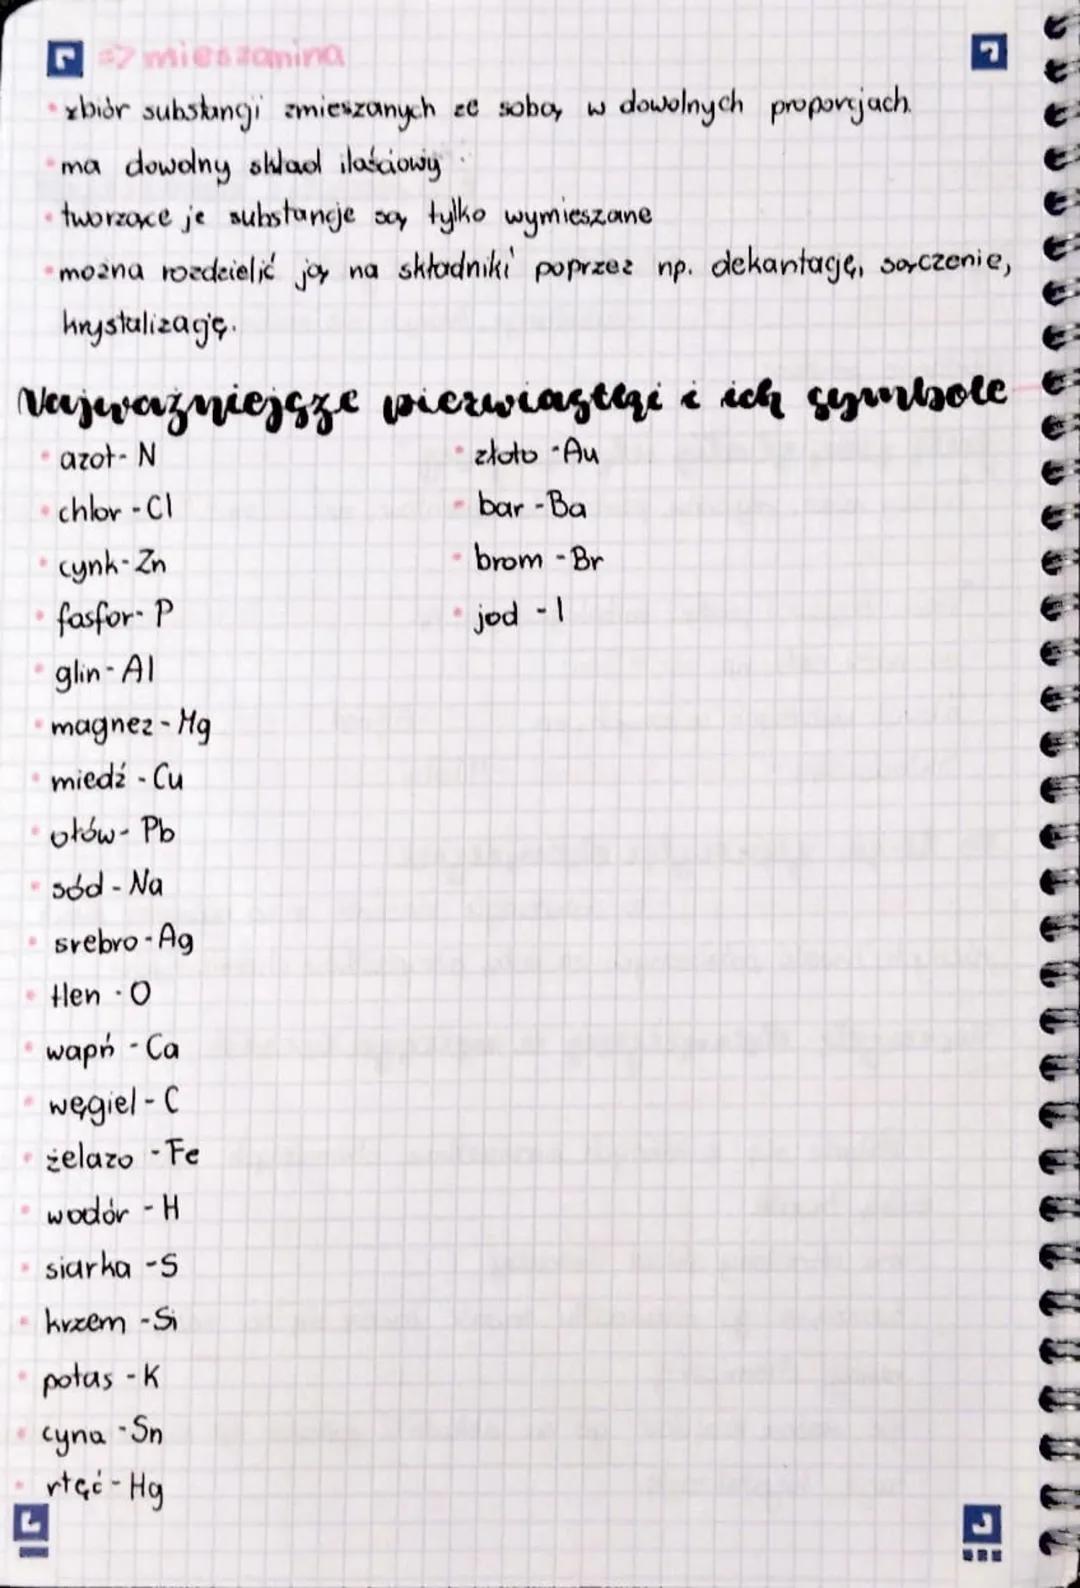 => mieszanina
• zbiór substancji zmieszanych ze sobą w dowolnych proporcjach.
• ma dowolny skład ilościowy.
• tworzące je substancje są tylko wymieszane
• można rozdzielić ją na składniki poprzez np. dekantację, sączenie,
krystalizację.
Najważniejsze pierwiastki i ich symbole
• azot - N
• chlor - Cl
• cynk - Zn
• fosfor - P
• glin - Al
• magnez - Mg
• miedź - Cu
• ołów - Pb
• sód - Na
• srebro - Ag
• tlen - O
• wapń - Ca
• węgiel - C
• żelazo - Fe
• wodór - H
• siarka - S
• krzem - Si
• potas - K
• cyna - Sn
• rtęć - Hg
• złoto - Au
• bar - Ba
• brom - Br
• jod - I